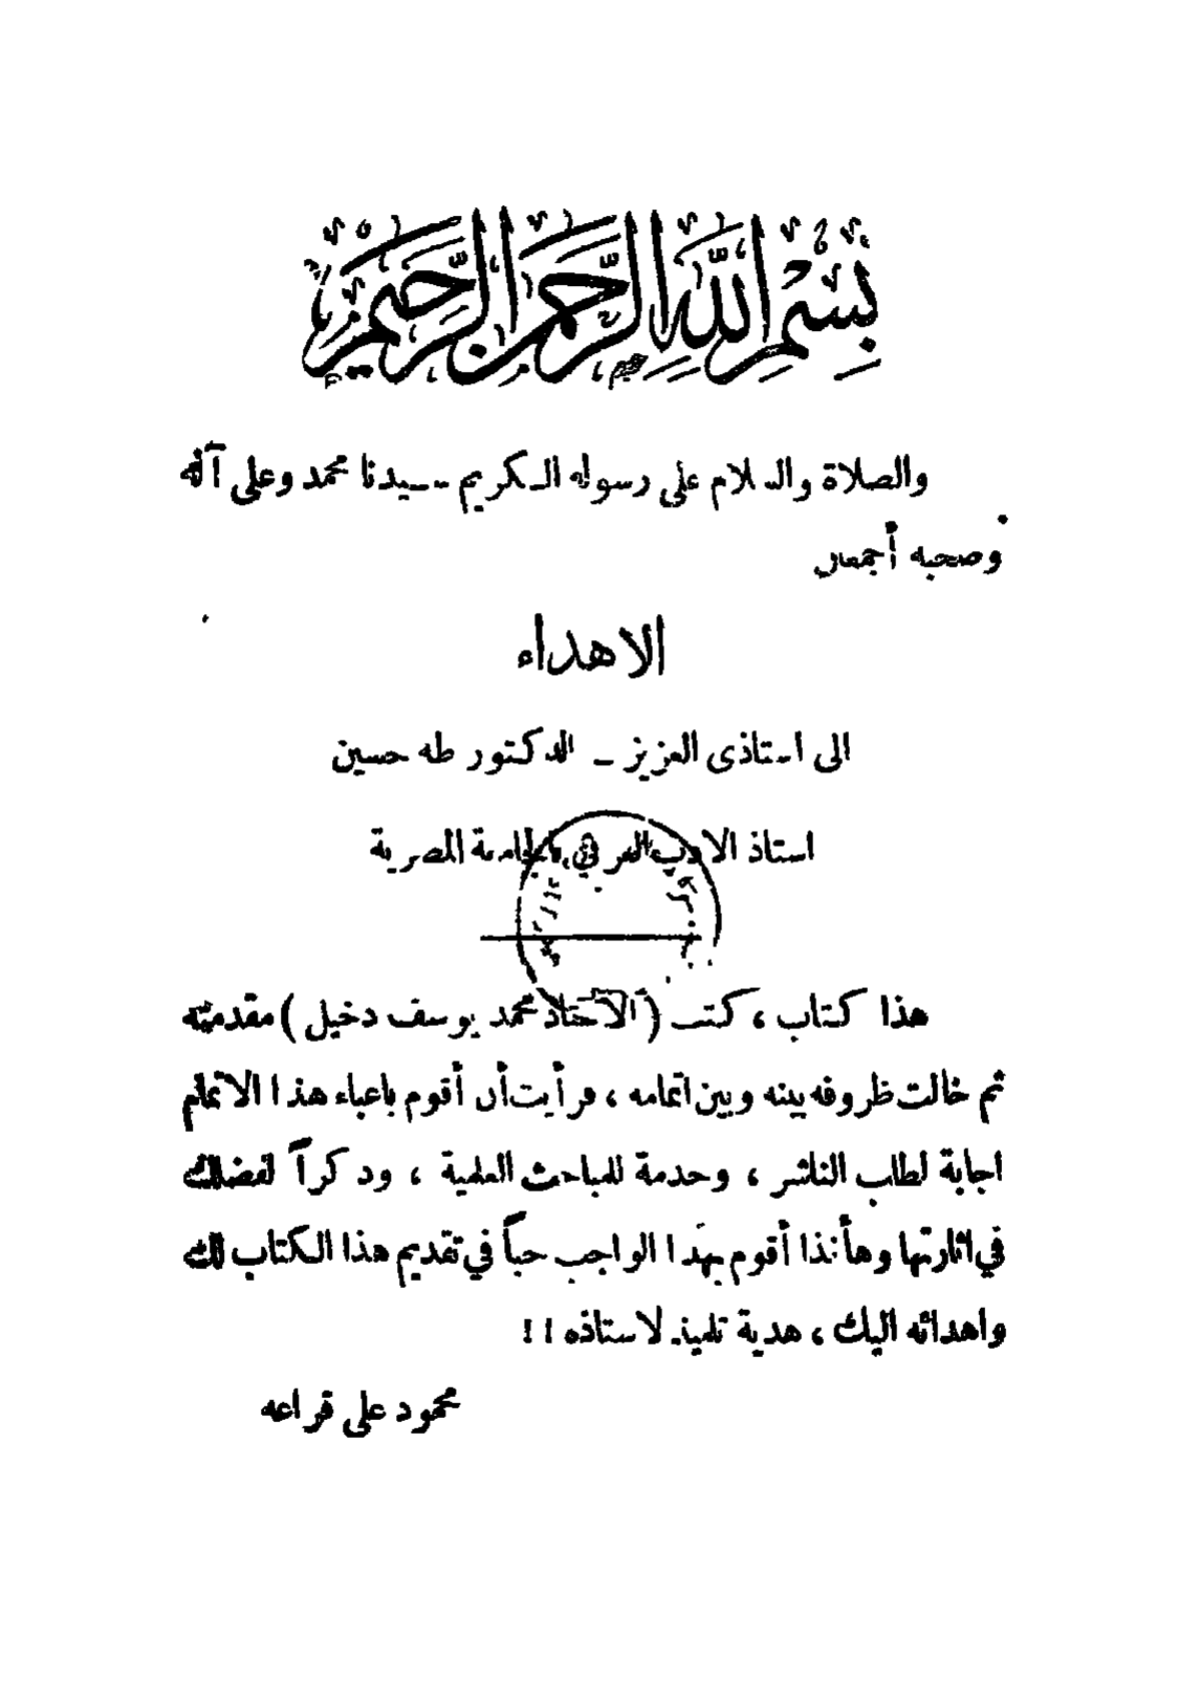 بِسْمِ اللَّهِ الرَّحْمَنِ الرَّحِيمِ
والصلاة والسلام على رسوله الكريم سيدنا محمد وعلى آله
وصحبه أجمعين
الاهداء
الى استاذى العزيز ــ الدكتور طه حسين
استاذ الادب العربي بالجامعة المصرية
هذا كتاب ، كتب ( الاستاذ محمد يوسف دخيل ) مقدمته
ثم حالت ظروفه بينه وبين اتمامه ، فرأيت أن أقوم باعباء هذا الاتمام
اجابة لطلب الناشر ، وخدمة للمباحث العلمية ، وذكراً لفضلك
في اثارتها وهأنذا أقوم بهذا الواجب حباً في تقديم هذا الكتاب لك
واهدائه اليك ، هدية تلميذ لاستاذه !!
محمود على قراعه